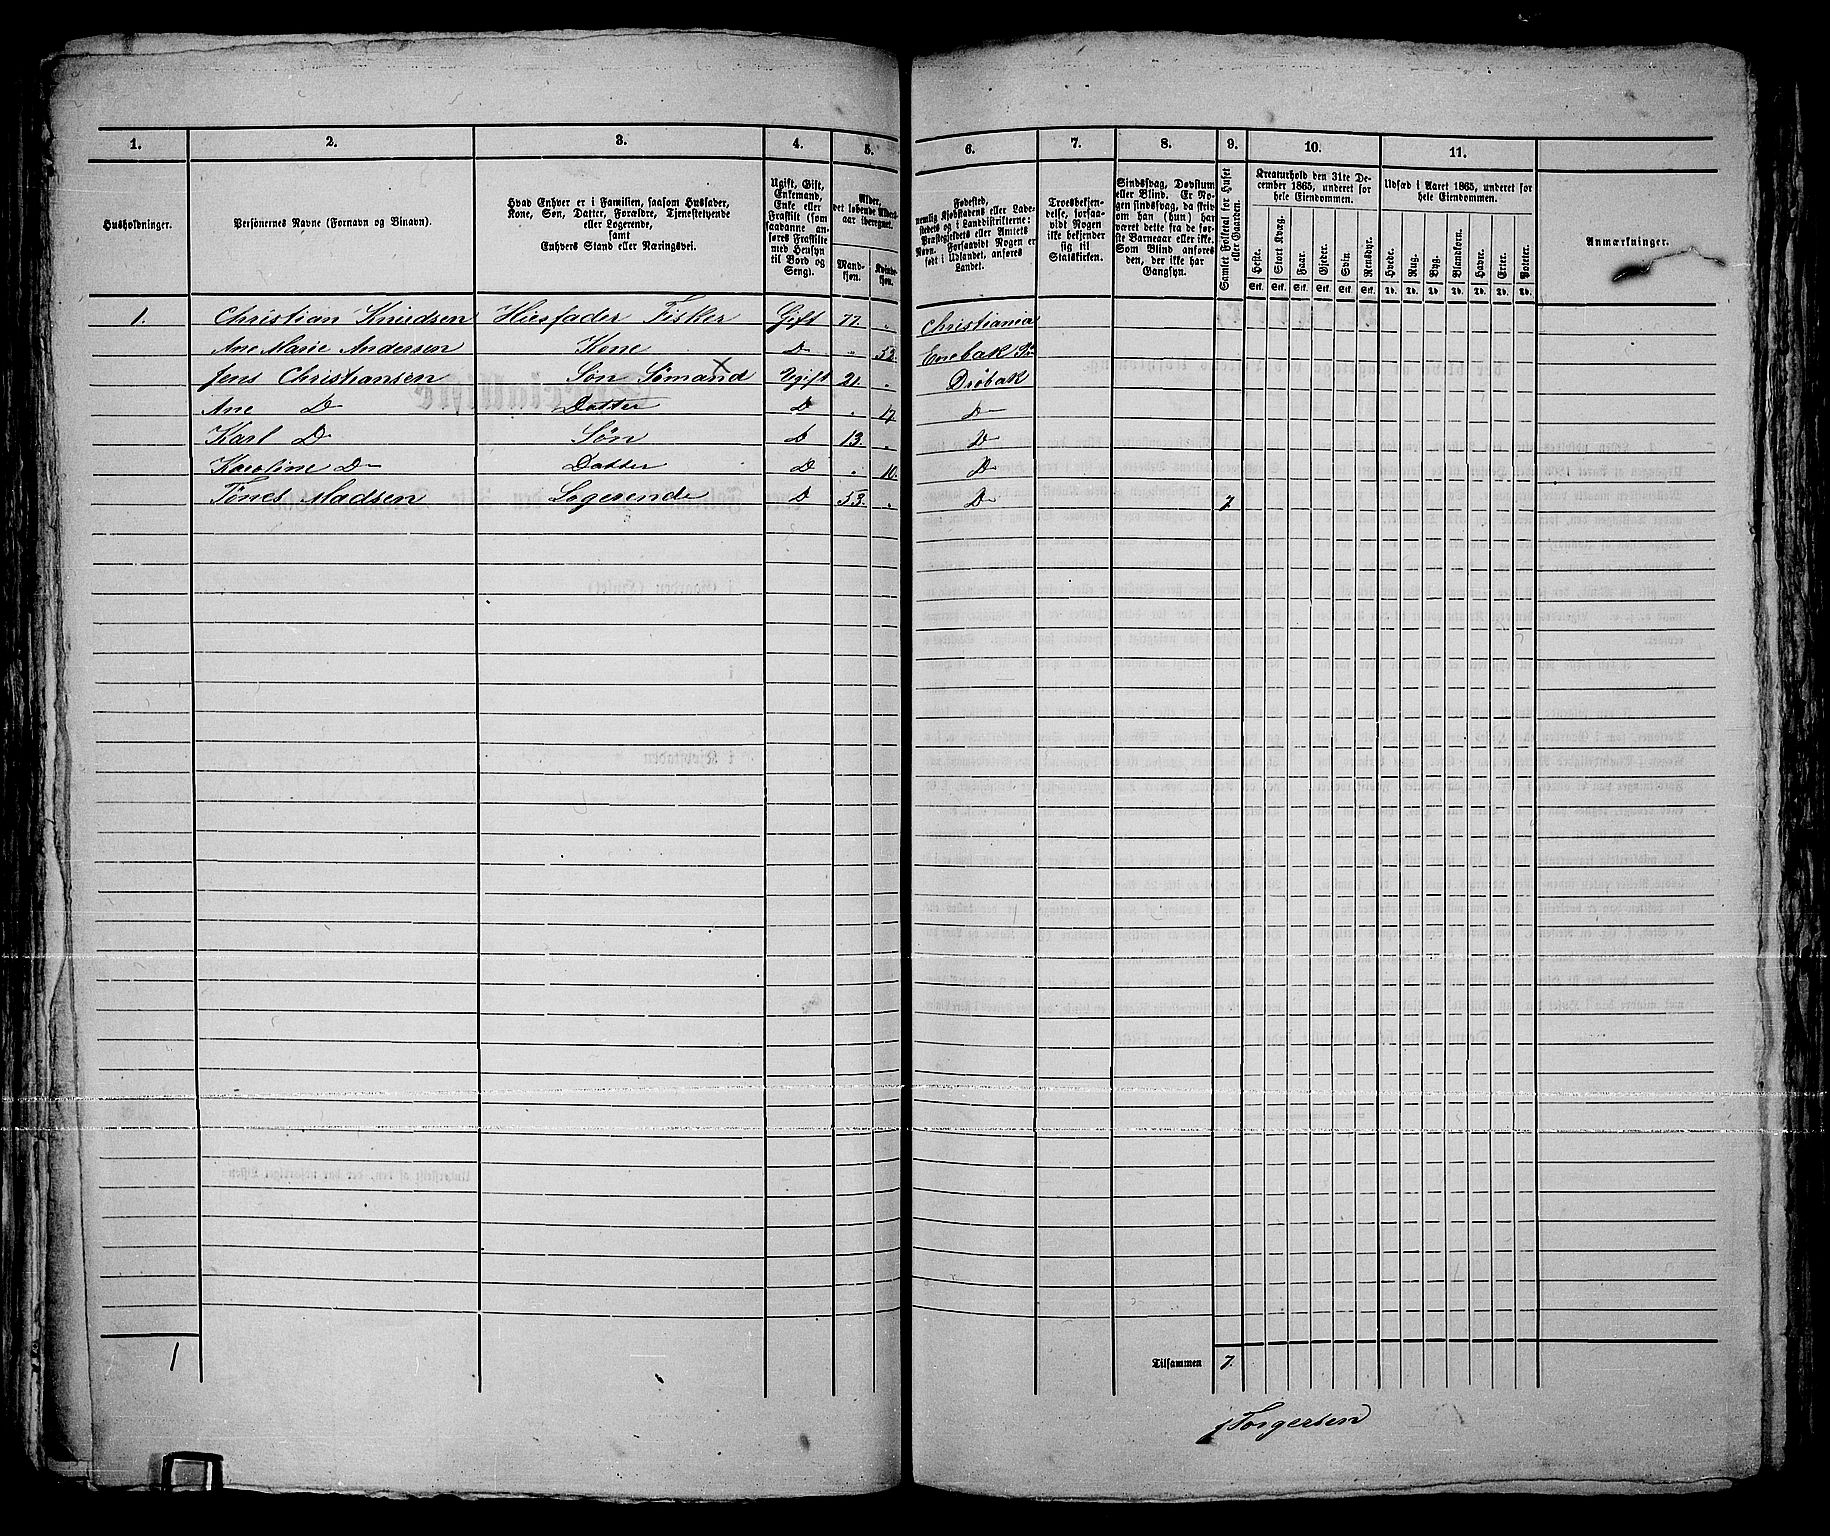 1. 2. 3. 4. 5. 6. 7. 8. 9. 10. 11.
Husholdninger.
Personernes Navne (Fornavn og Binavn).
Hvad Enhver er i Familien, saasom Husfader,
Kone, Søn, Datter, Forældre, Tjenestetyende
eller Logerende,
samt
Enhvers Stand eller Næringsvei.
Ugift, Gift,
Enkemand,
Enke eller
Fraskilt (som
saadanne an-
føres Fraskilte
med Hensyn
til Bord og
Seng).
Alder,
det løbende Alders-
aar iberegnet.
Mand-
kjøn.
Kvinde-
kjøn.
Fødested,
nemlig Kjøbstadens eller Lade-
stedets og i Landdistrikterne:
Præstegjeldets eller Amtets
Navn. Forsaavidt Nogen er
født i Udlandet, anføres
Landet.
Troesbekjen-
delse, forsaa-
vidt Nogen
ikke bekjender
sig til
Statskirken.
Sindssvag, Døvstum
eller Blind. Er No-
gen sindssvag, da skriv
om han (hun) har
været dette fra de før-
ste Barneaar eller ikke.
Som Blind anføres
den, der ikke har
Gangsyn.
Samlet Folketal for Huset
eller Gaarden.
Kreaturhold den 31te De-
cember 1865, underet for
hele Eiendommen.
Heste. Stort Kvæg. Faar. Gjeder. Svin. Rensdyr.
Stk. Stk. Stk. Stk. Stk. Stk.
Udsæd i Aaret 1865, underet for
hele Eiendommen.
Hvede. Rug. Byg. Blandkorn. Havre. Erter. Poteter.
Td. Td. Td. Td. Td. Td. Td.
Anmærkninger.
1. Christian Knudsen Husfader Fisker Gift 77. " Christiania
Ane Marie Andersen Kone D " 52. Enebak
Jens Christiansen Søn Sømand Ugift 21. " Drøbak
Ane D Datter D " 17. D
Karl D Søn D 13. " D
Karoline D Datter D " 10. D
Tønes Madsen Logerende D 53. " D 7
1
Tilsammen 7.
Torgersen